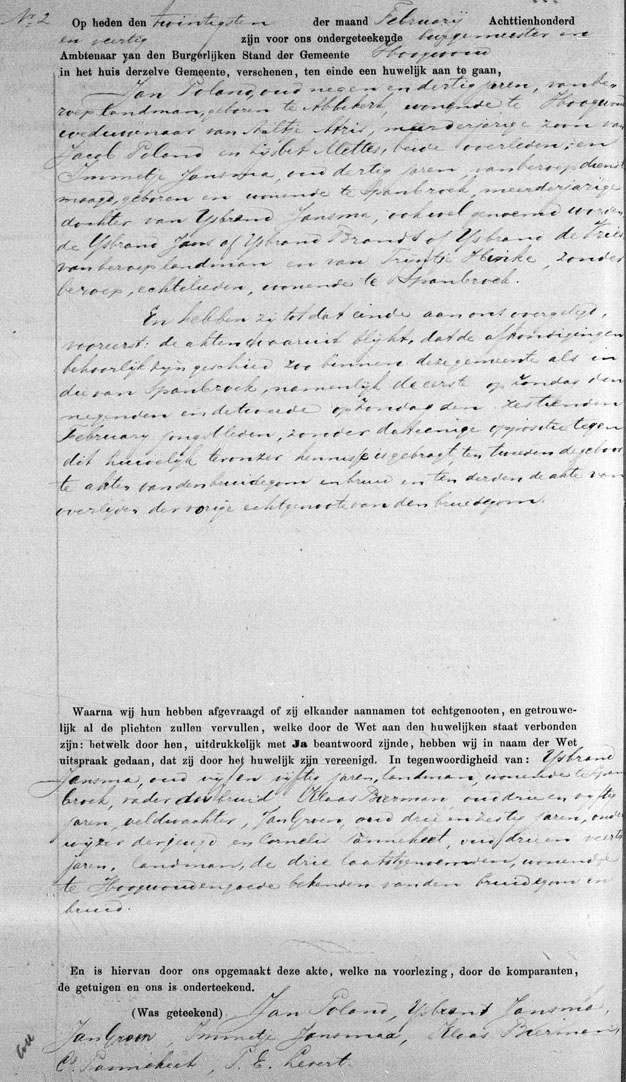 No 2
Op heden den twintigsten der maand February Achttienhonderd
en veertig zijn voor ons ondergeteekende burgemeester en
Ambtenaar van den Burgerlijken Stand der Gemeente Hoogwoud
in het huis derzelve Gemeente, verschenen, ten einde een huwelijk aan te gaan,
Jan Poland, oud negen en dertig jaren, van be-
roep landman, geboren te Abbekerk, wonende te Hoogwoud
weduwnaar van Aaltje Stris, meerderjarige zoon van
Jacob Poland en Lijsbet Mettes, beide overleden; en
Immetje Jansma, oud dertig jaren, van beroep dienst
maagd, geboren en wonende te Spanbroek, meerderjarige
dochter van IJsbrand Jansma, ook wel genoemd worden
de IJsbrand Jans of IJsbrand Brands of IJsbrand de Vries
van beroep landman en van Trijntje Henke, zonder
beroep, echtelieden, wonende te Spanbroek.
En hebben zij tot dat einde aan ons overgelegd,
vooreerst: de akten waaruit blijkt, dat de afkondigingen
behoorlijk zijn geschied zoo binnen deze gemeente als in
die van Spanbroek, namenlijk de eerste op zondag den
negenden en de tweede op zondag den zestienden
February jongstleden, zonder dat eenige oppositie tegen
dit huwelijk ter onzer kennis is gebragt, ten tweeden de geboor
te akten van den bruidegom en bruid en ten derden de akte van
overlijden der vorige echtgenoote van den bruidegom.
Waarna wij hun hebben afgevraagd of zij elkander aannamen tot echtgenooten, en getrouwe-
lijk al de plichten zullen vervullen, welke door de Wet aan den huwelijken staat verbonden
zijn: hetwelk door hen, uitdrukkelijk met Ja beantwoord zijnde, hebben wij in naam der Wet
uitspraak gedaan, dat zij door het huwelijk zijn vereenigd. In tegenwoordigheid van: IJsbrand
Jansma, oud vijf en vijftig jaren, landman, wonende te Span
broek, vader der bruid Klaas Bierman, oud drie en vijftig
jaren, veldwachter, Jan Groen, oud drie en zestig jaren, onder
wijzer der jeugd en Cornelis Pannekeet, oud drie en veertig
jaren, landman, de drie laatstgenoemden, wonende
te Hoogwoud en goede bekenden van den bruidegom en
bruid.
En is hiervan door ons opgemaakt deze akte, welke na voorlezing, door de komparanten,
de getuigen en ons is onderteekend.
(Was geteekend) Jan Poland, IJsbrand Jansma,
Jan Groen, Immetje Jansmaa, Klaas Bierman
Cs Pannekeet, P. E. Levert.